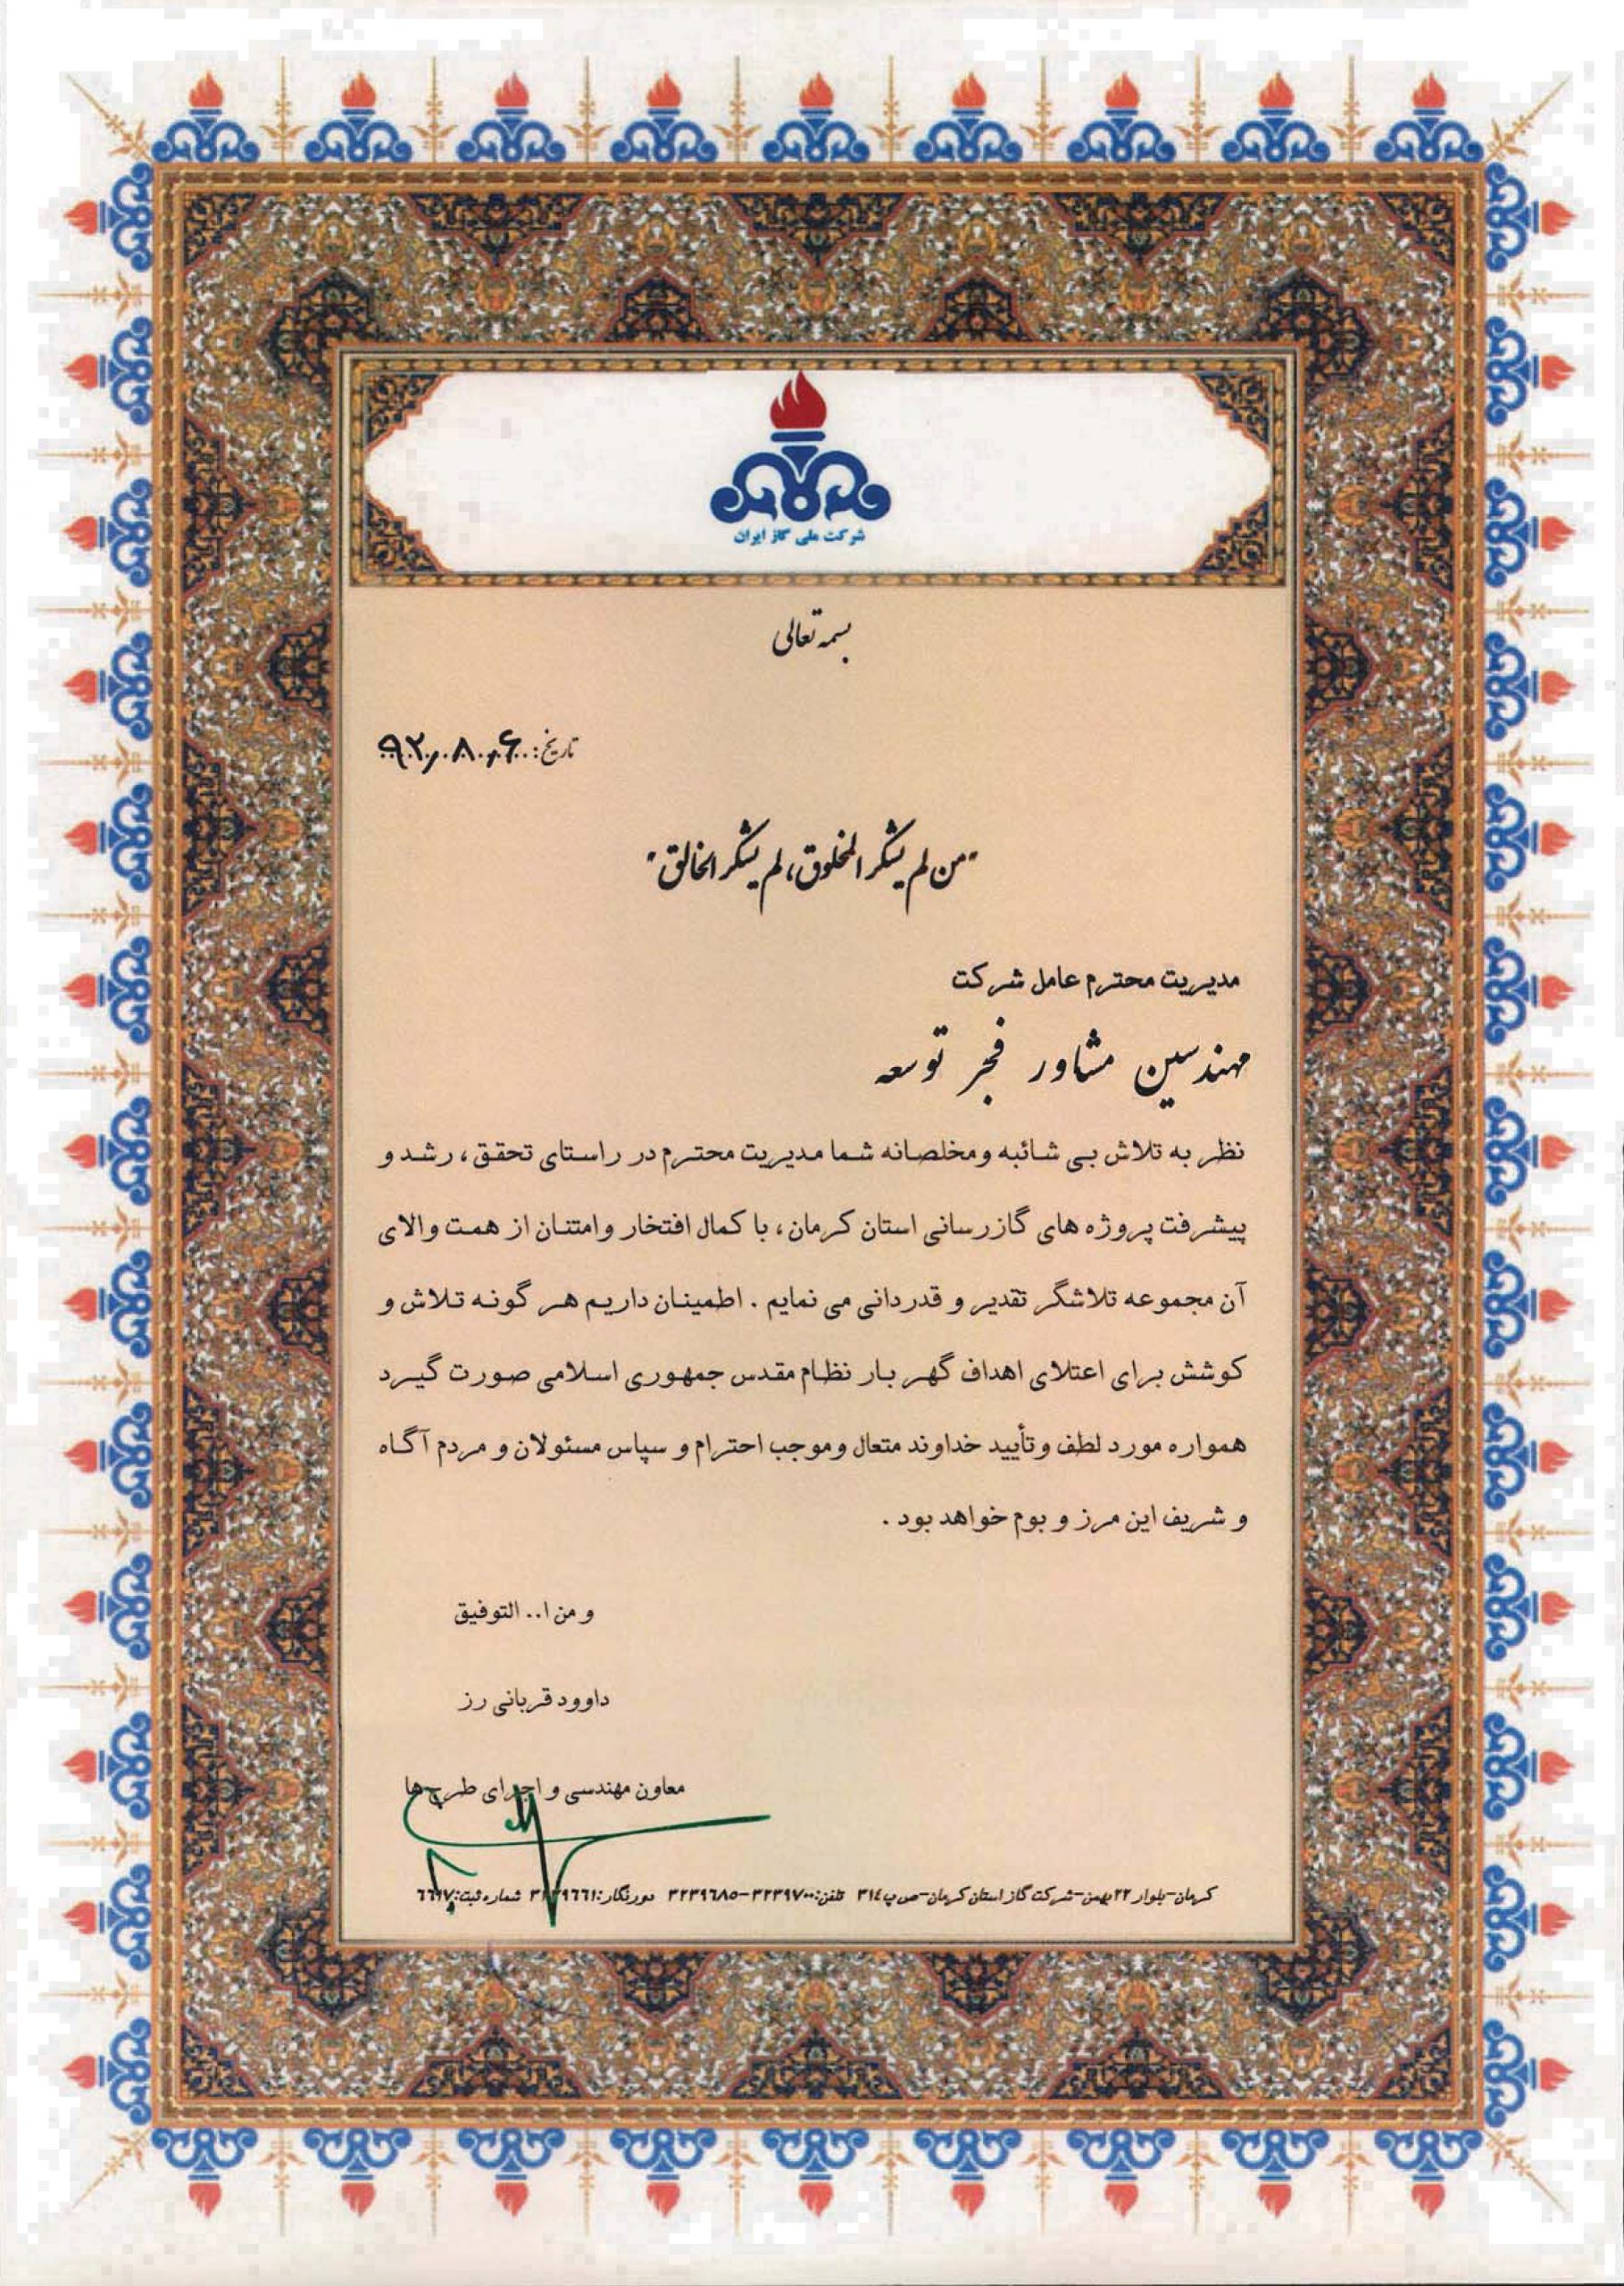 شرکت ملی گاز ایران
بسمه تعالی
تاریخ: ۹۲/۰۸/۰۶
"من لم یشکر المخلوق، لم یشکر الخالق"
مدیریت محترم عامل شرکت
مهندسین مشاور فجر توسعه
نظر به تلاش بی شائبه ومخلصانه شما مدیریت محترم در راستای تحقق، رشد و
پیشرفت پروژه های گازرسانی استان کرمان، با کمال افتخار وامتنان از همت والای
آن مجموعه تلاشگر تقدیر و قدردانی می نمایم . اطمینان داریم هر گونه تلاش و
کوشش برای اعتلای اهداف گهر بار نظام مقدس جمهوری اسلامی صورت گیرد
همواره مورد لطف وتأیید خداوند متعال وموجب احترام و سپاس مسئولان و مردم آگاه
و شریف این مرز و بوم خواهد بود .
و من ا.. التوفیق
داوود قربانی رز
معاون مهندسی و اجرای طرح ها
کرمان-بلوار ۲۲ بهمن-شرکت گاز استان کرمان-ص پ ۳۱۴ تلفن: ۳۲۳۹۷۰۰-۳۲۳۹۶۸۵ دورنگار: شماره ثبت: